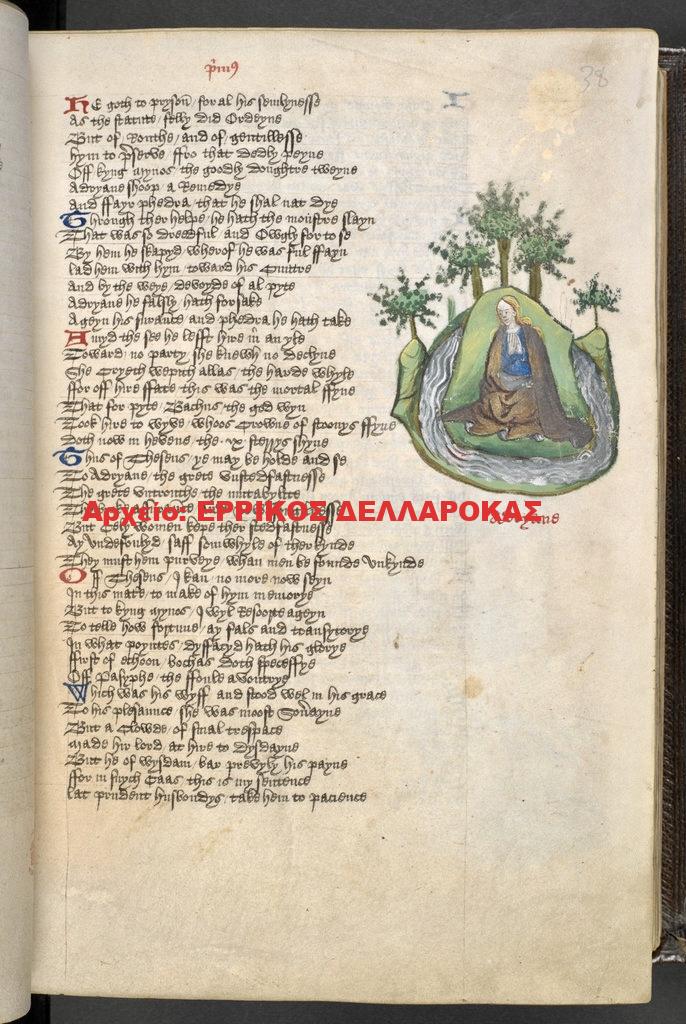 p'mus
38
HE goth to pryson / for al his semlynesse
As the statute / felly did Ordeyne
But of Routhe / and of gentillesse
hym to p'serve ffro that dedly peyne
Off kyng mynos the goodly doughtre tweyne
Adryane shoop a Remedye
And ffayr phedra that he shal nat dye
Through ther helpe / he hath the moustre slayn
That was so dreedful and Owgh for to se
By hem he skapyd / wherof he was ful ffayn
lad hem with hym / toward his Cuntre
and by the weye / devoyde of al pyte
Adryane he falsly hath forsake
Ageyn his and phedra he hath take
Amyd the see he lefft hire in an yle
Toward no party she knewh no declyne
She Cryeth wepith allas the harde whyle
ffor off hire ffate this was the mortal ffyne
That for pyte / Bachus the god wyn
Took hire to wyve / whoos Crowne of stoonys ffyne
doth now in hevene the ix sterrys shyne
Thus of Theseus / ye may be holde and se
To Adryane / the grete vnstedfastnesse
The grete vntrouthe the mutabylite
Αρχείο: ΕΡΡΙΚΟΣ ΔΕΛΛΑΡΟΚΑΣ
But Cely women kepe ther stedfastnesse
Ay Vndefoulyd saff somwhyle of ther kynde
They must hem purveye / whan men be founde Vnkynde
Off Theseus / I kan no more now seyn
In this mate / to make of hym memorye
But to kyng mynos / I wyl Resoorte ageyn
To telle how fortune / ay fals and transytorye
In what poyntes / dyffacyd hath his glorye
ffirst of ethoon / bochas doth speceffye
Off Pasyphe / the ffoule avoutrye
Which was his wyff and stood wel in his grace
To his plesaunce / she was moost Soverayne
But a Clowde / of smal trespace
made hir lord at hire to dysdayne
But he of wysdam / bar prevyly his payne
ffor in swych Caas / this is my sentence
lat prudent husbondys / take hem to pacience
adryane